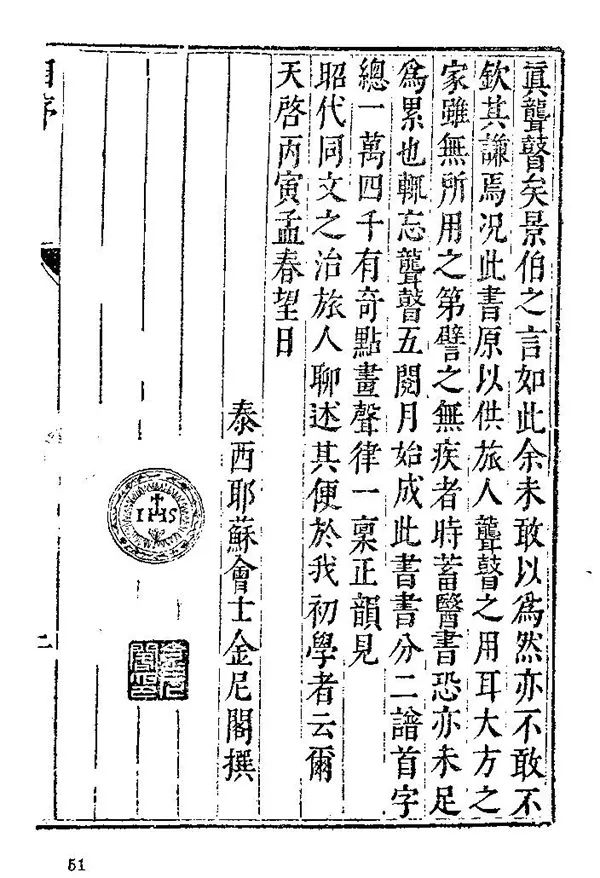 眞聾瞽矣景伯之言如此余未敢以爲然亦不敢不
欽其謙焉况此書原以供旅人聾瞽之用耳大方之
家雖無所用之第譬之無疾者時蓄醫書恐亦未足
爲累也輒忘聾瞽五閱月始成此書書分二譜首字
總一萬四千有奇點畫聲律一稟正韻見
昭代同文之治旅人聊述其便於我初學者云爾
天啓丙寅孟春望日
泰西耶蘇會士金尼閣撰
IHS
自序
二
51